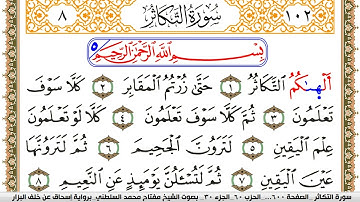 ٨ سُورَةُ التَّكَاثُرِ ١٠٢
بِسْمِ اللَّهِ الرَّحْمَٰنِ الرَّحِيمِ ٥
أَلْهَىٰكُمُ التَّكَاثُرُ ١ حَتَّىٰ زُرْتُمُ الْمَقَابِرَ ٢ كَلَّا سَوْفَ
تَعْلَمُونَ ٣ ثُمَّ كَلَّا سَوْفَ تَعْلَمُونَ ٤ كَلَّا لَوْ تَعْلَمُونَ
عِلْمَ الْيَقِينِ ٥ لَتَرَوُنَّ الْجَحِيمَ ٦ ثُمَّ لَتَرَوُنَّهَا
عَيْنَ الْيَقِينِ ٧ ثُمَّ لَتُسْـَٔلُنَّ يَوْمَئِذٍ عَنِ النَّعِيمِ ٨
سورة التكاثر الصفحة ٦٠٠.... الحزب ٦٠ الجزء ٣٠ بصوت الشيخ مفتاح محمد السلطني برواية إسحاق عن خلف البزار